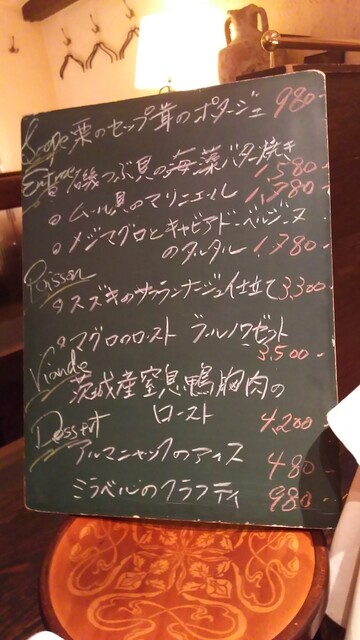 Soupe 栗のセップ茸のポタージュ 980-
Entree 磯つぶ貝の海藻バター焼き
1,580-
ムール貝のマリニエール 1,780-
メジマグロとキャビアド・ベルジーヌ
のタルタル 1,780
Poisson
スズキのサランナジュ仕立て 3,300-
マグロのロースト ブールノワゼット
3,500-
Viande 茨城産窒息鴨胸肉の
ロースト 4,200-
Dessert
アルマニャックのアイス 480
ミラベルのクラフティ 980-